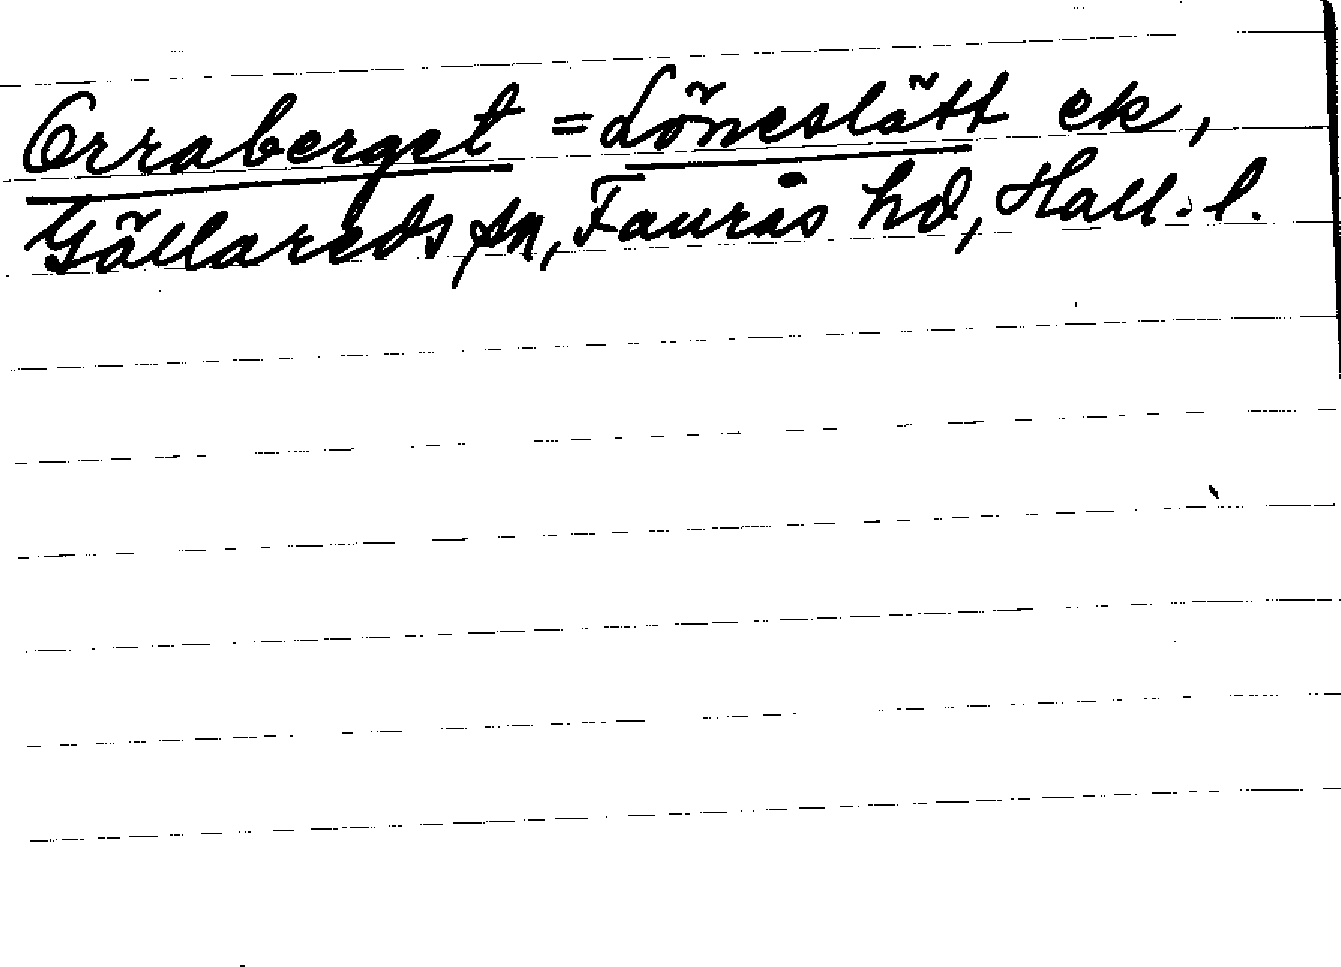 Orraberget = Löneslätt ek,
Gällareds sn, Faurås hd, Hall. l.